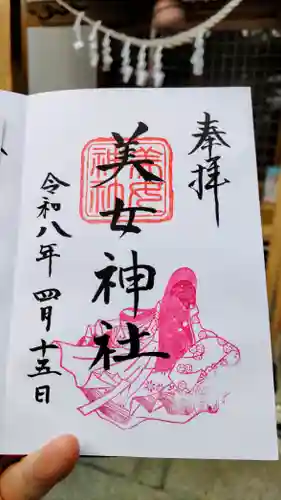 奉拝
美女神社
美女神社
令和八年 四月十五日